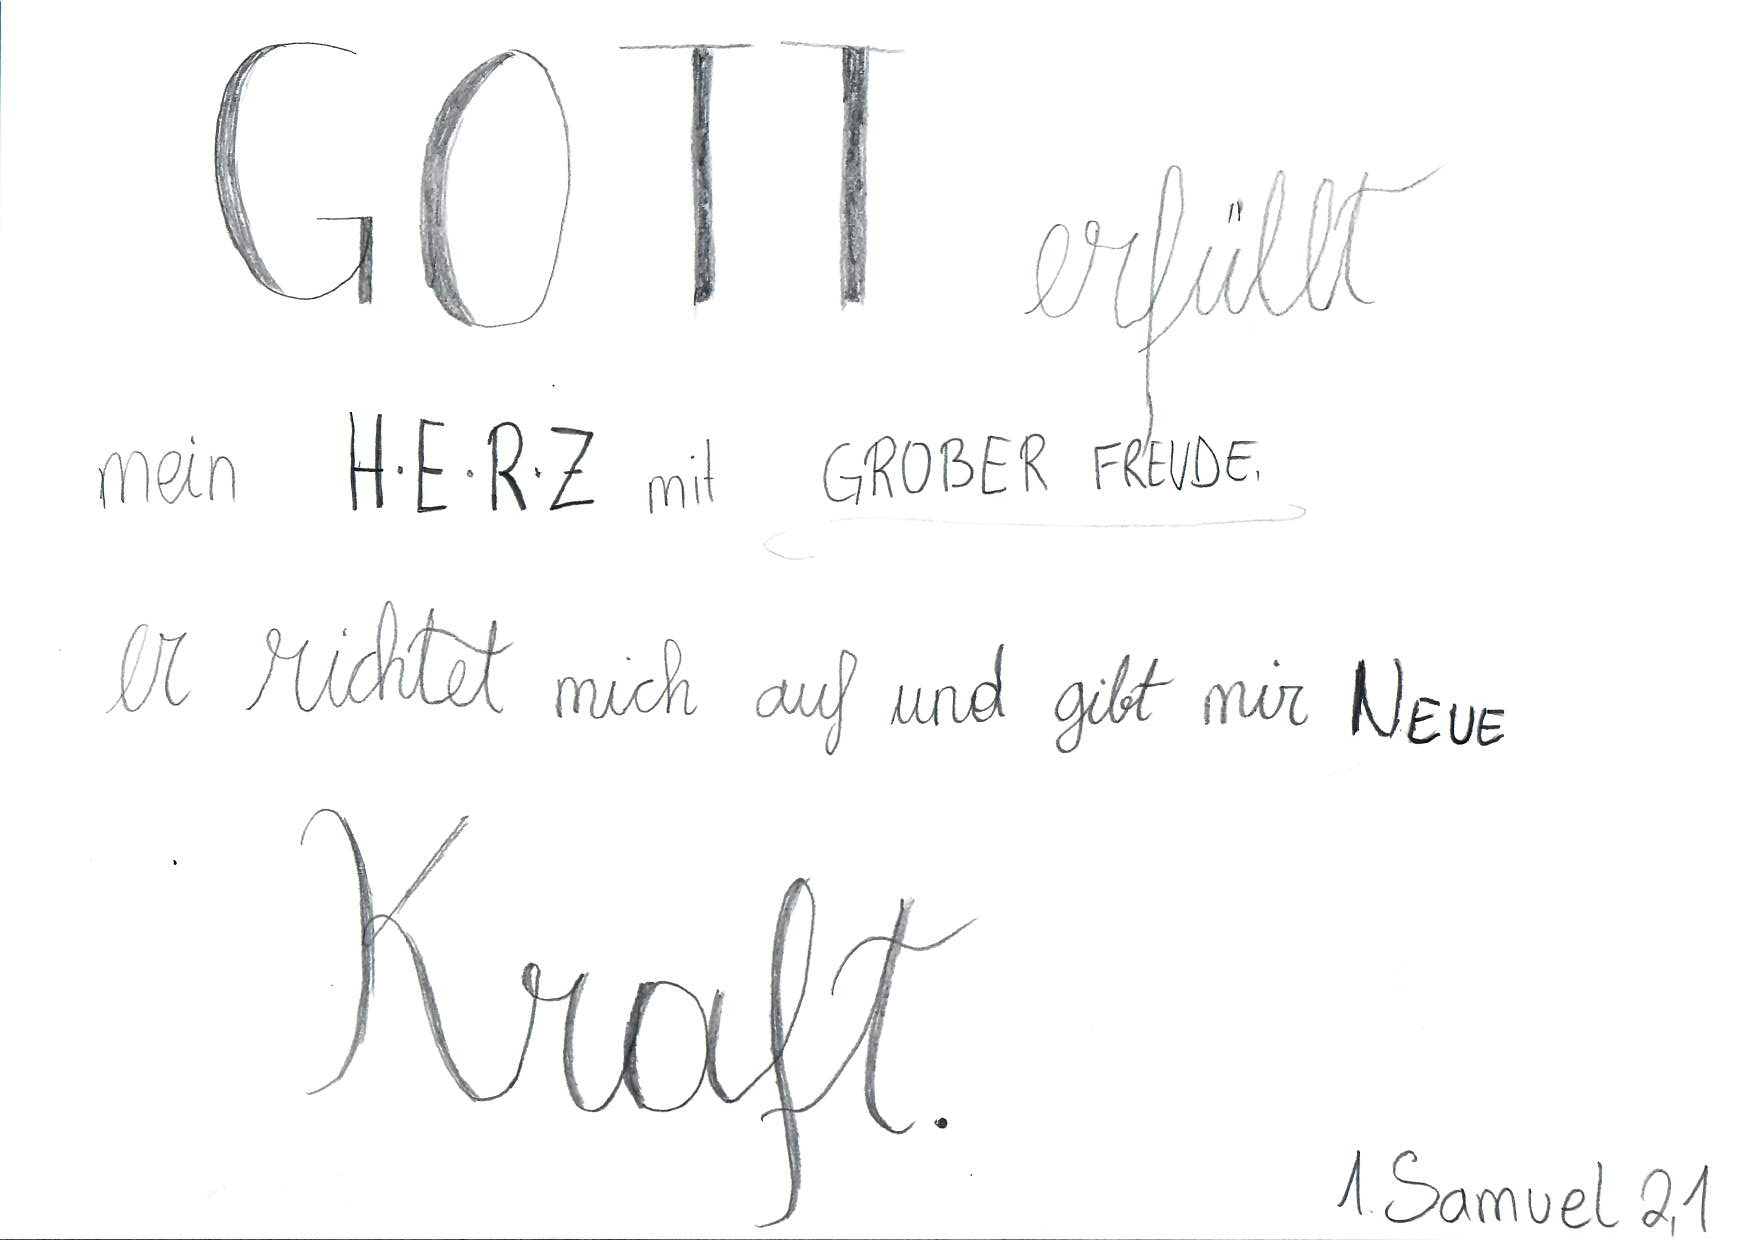 GOTT erfüllt
mein H·E·R·Z mit GROßER FREUDE.
er richtet mich auf und gibt mir NEUE
Kraft.
1. Samuel 2,1